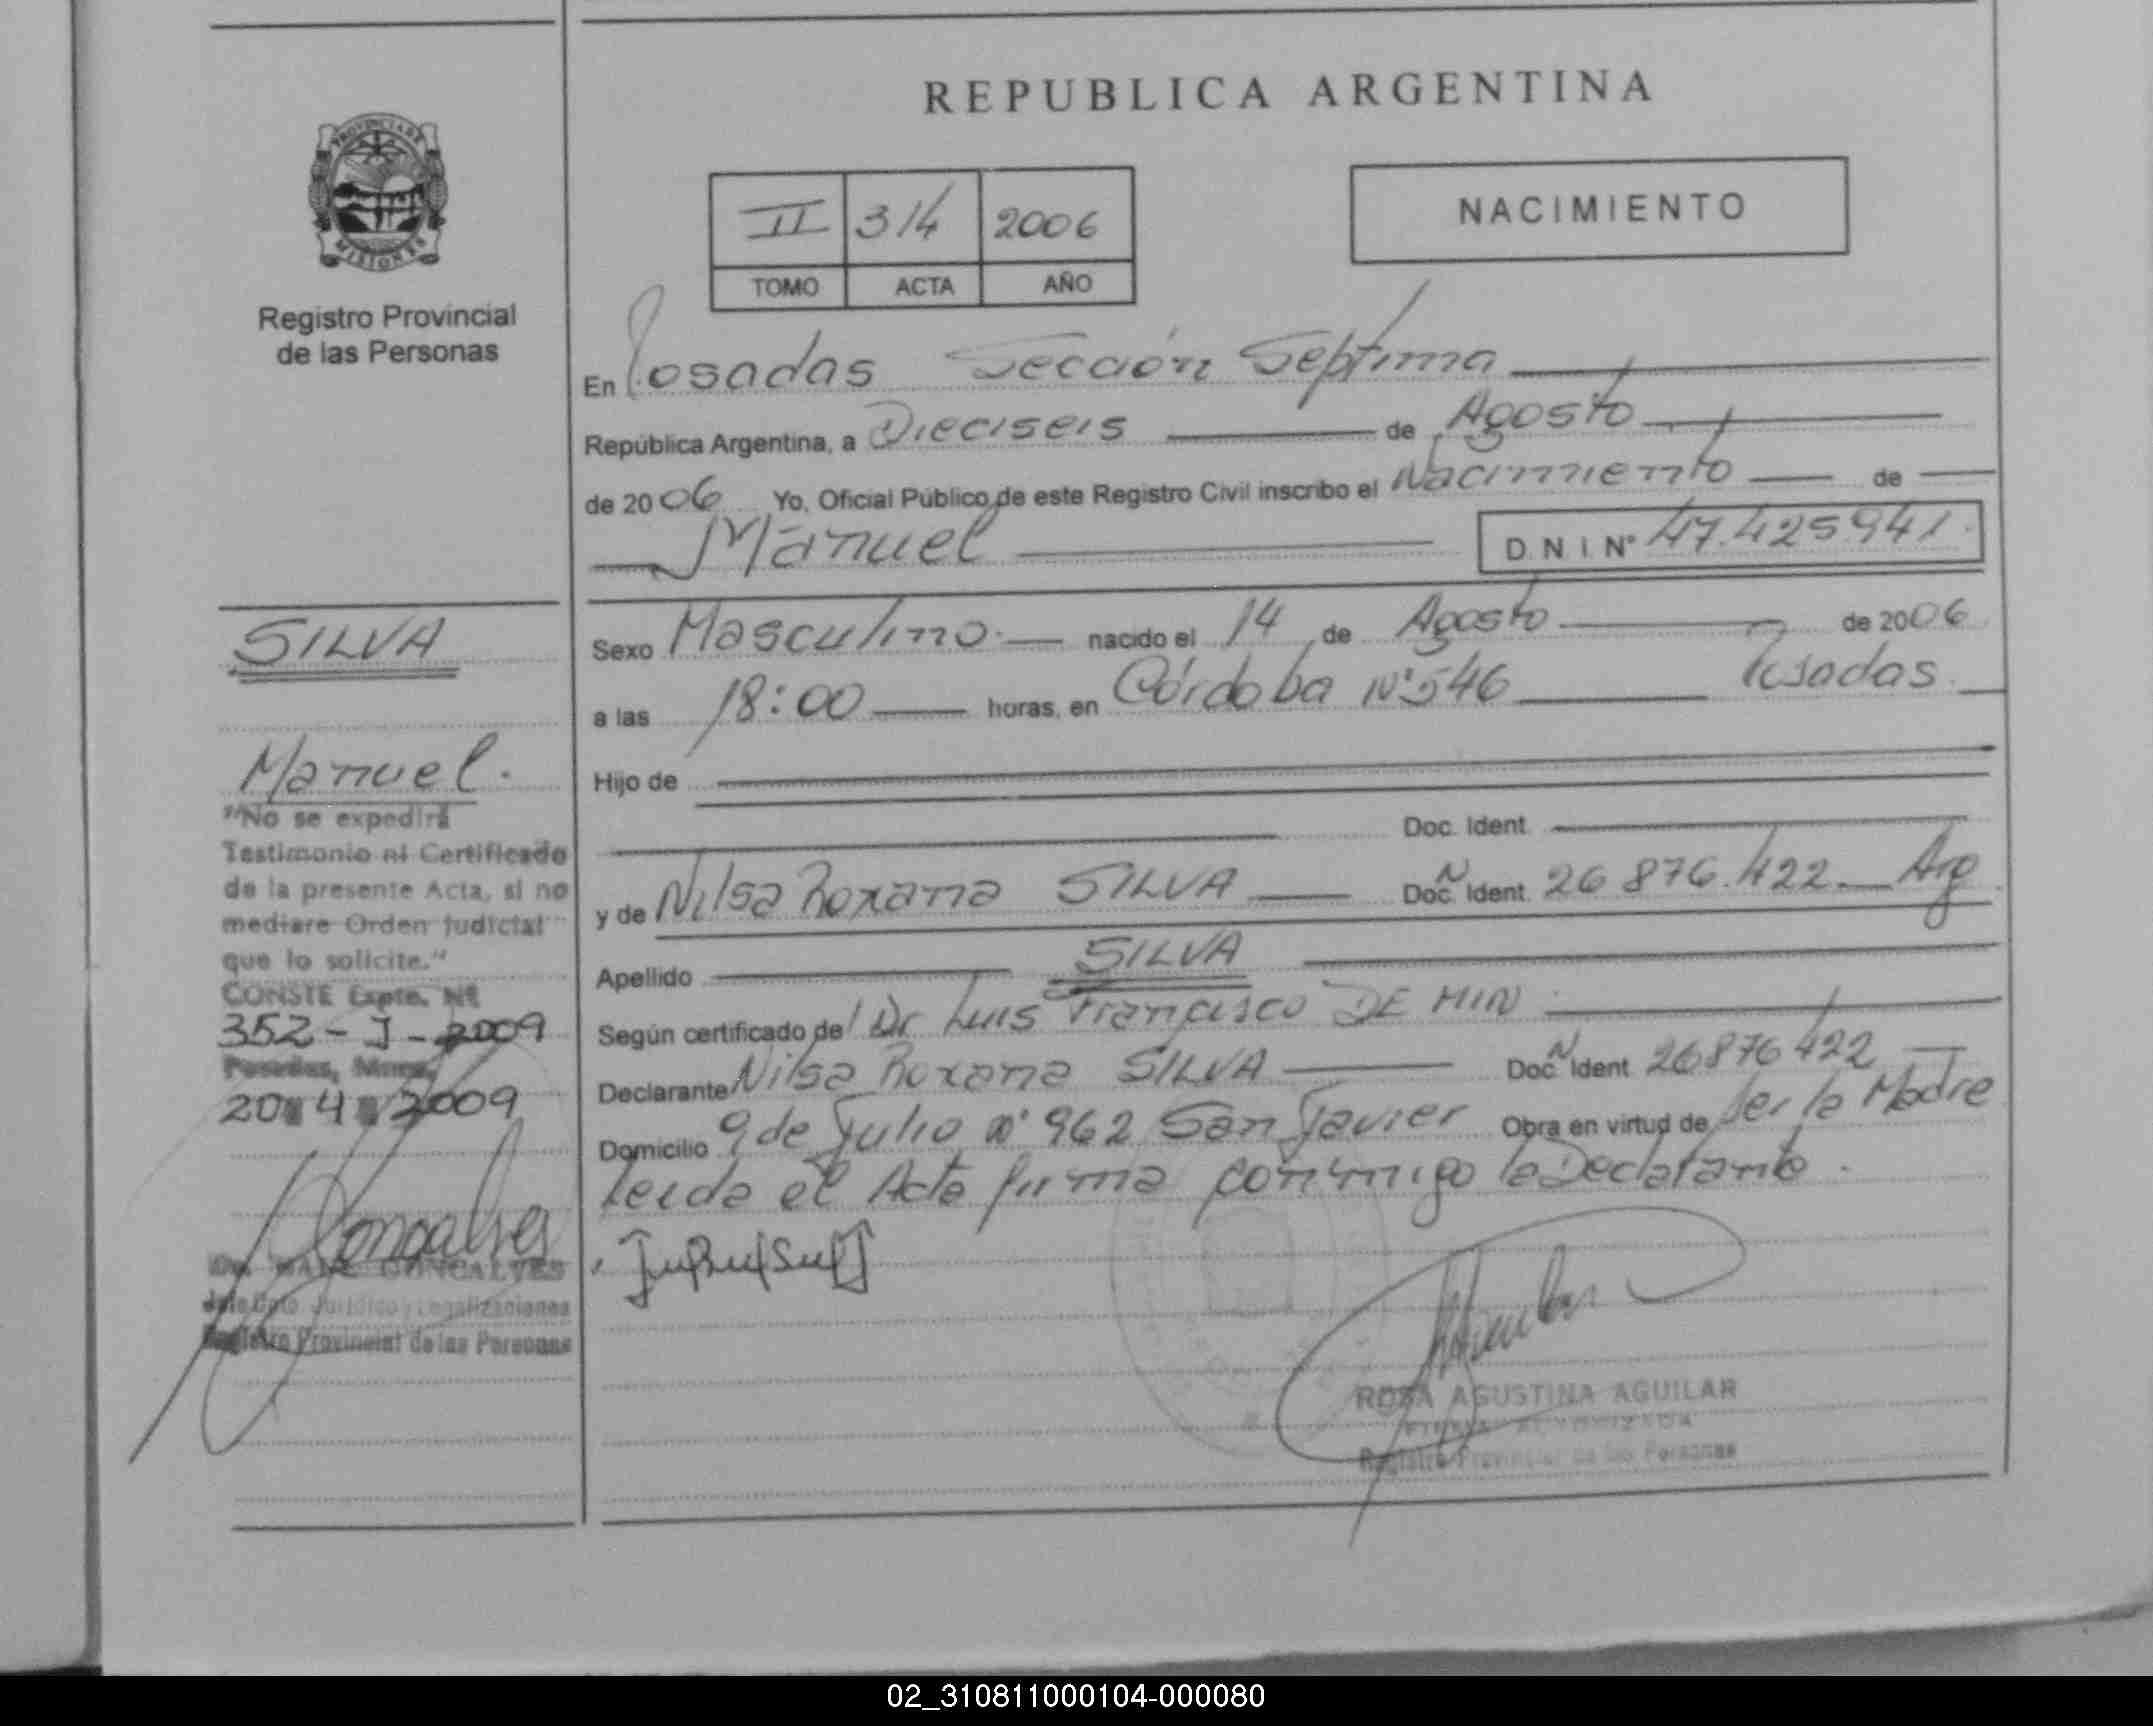 REPUBLICA ARGENTINA
PROVINCIA DE
MISIONES
Registro Provincial
de las Personas
II 314 2006
TOMO ACTA AÑO
NACIMIENTO
En Posadas Sección Septima
República Argentina, a Dieciseis de Agosto
de 2006 Yo, Oficial Público de este Registro Civil inscribo el Nacimiento de
Manuel D.N.I. Nº 47.425941.
SILVA
Manuel.
"No se expedirá
Testimonio ni Certificado
de la presente Acta, si no
mediare Orden Judicial
que lo solicite."
CONSTE Expte. Nº
352-J-2009
Posadas, Mnes,
20 4 2009
Goncalves
GONCALVES
Jefe Dpto. Jurídico y Legalizaciones
Registro Provincial de las Personas
Sexo Masculino. nacido el 14 de Agosto de 2006
a las 18:00 horas, en Córdoba Nº 546 Posadas
Hijo de
Doc. Ident.
y de Nilsa Roxana SILVA Doc. N Ident. 26 876.422. Arg
Apellido SILVA
Según certificado del Dr Luis Francisco DE MIN
Declarante Nilsa Roxana SILVA Doc. N Ident 26876422
Domicilio 9 de Julio nº 962 San Javier Obra en virtud de ser la Madre
Leida el Acta firma conmigo la Declarante.
ROSA AGUSTINA AGUILAR
FIRMA AUTORIZADA
Registro Provincial de las Personas
02_310811000104-000080